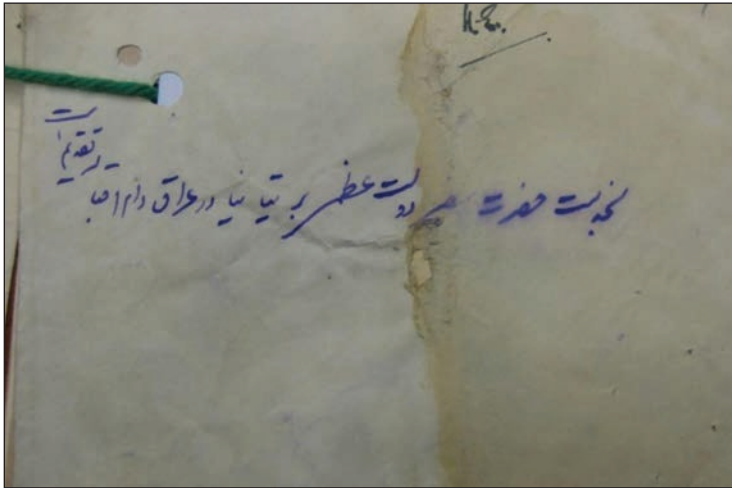 H.E.
بخدمت حضرت سفیر دولت عظمی بریتانیا در عراق دام اقباله
تقدیم است